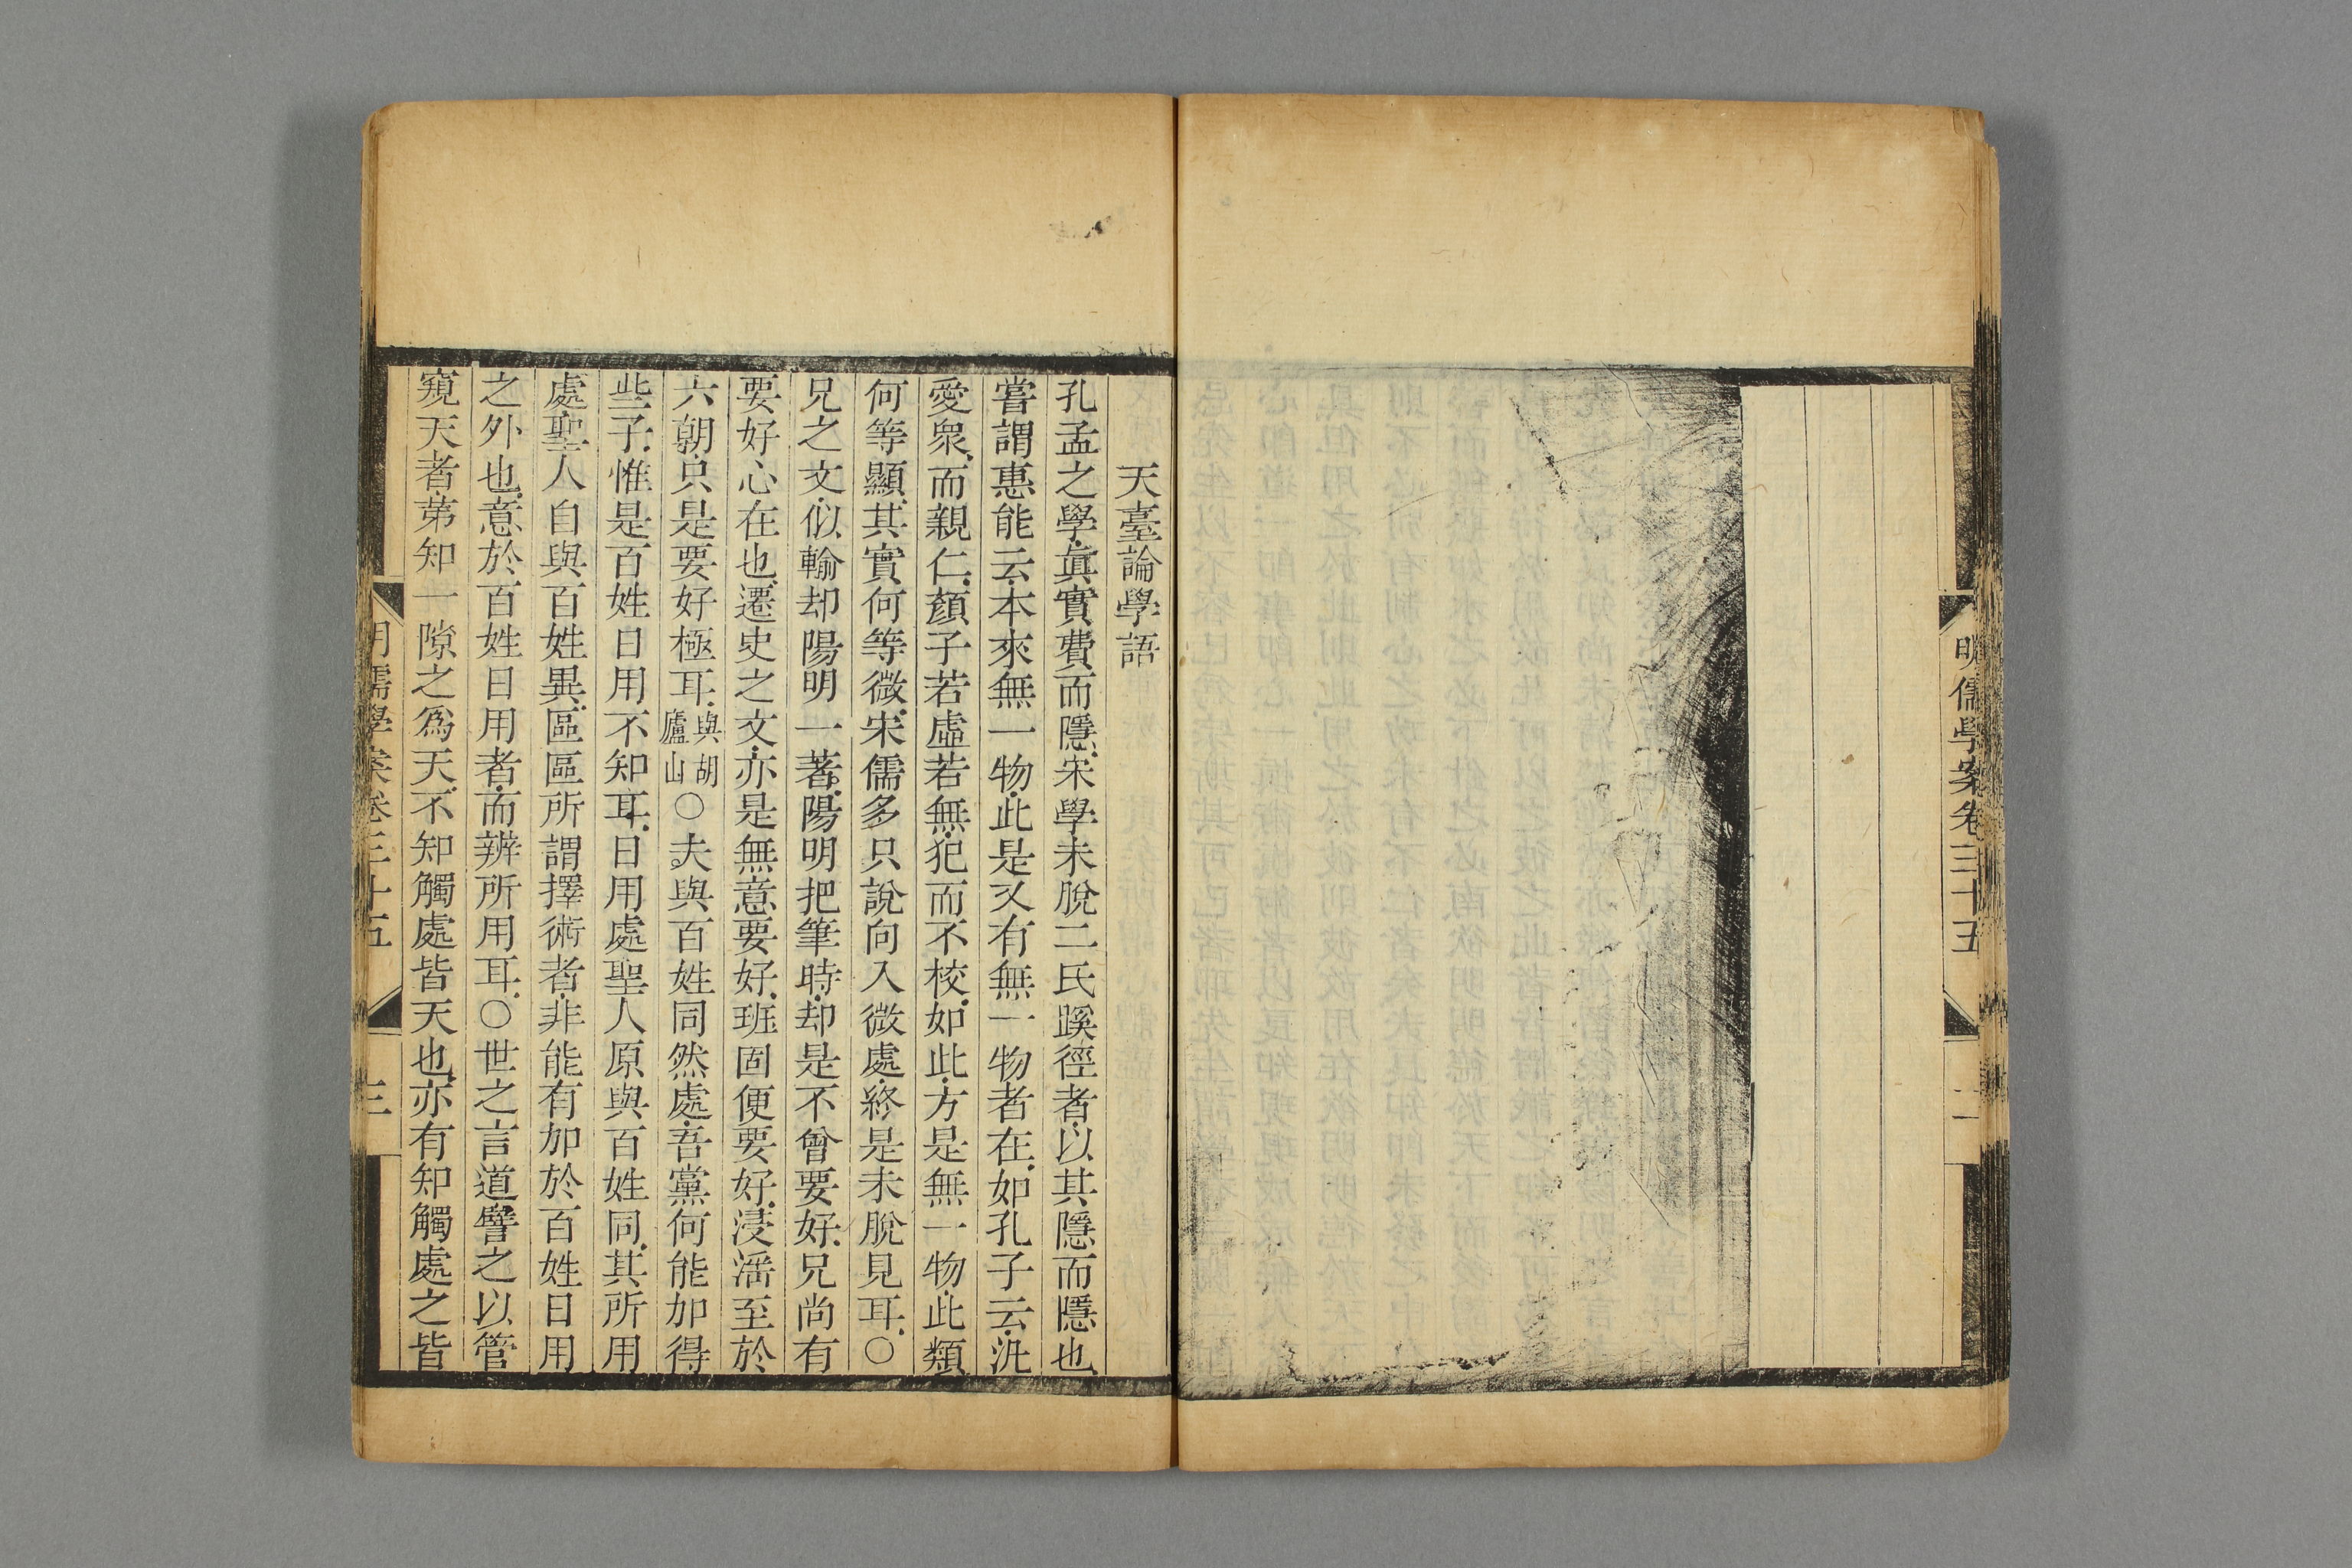 明儒學案卷三十五
二
天臺論學語
孔孟之學眞實費而隱宋學未脫二氏蹊徑者以其隱而隱也
嘗謂惠能云本來無一物此是又有無一物者在如孔子云汎
愛衆而親仁顏子若虛若無犯而不校如此方是無一物此類
何等顯其實何等微宋儒多只說向入微處終是未脫見耳○
兄之文似輸却陽明一著陽明把筆時却是不曾要好兄尚有
要好心在也遷史之文亦是無意要好班固便要好浸滛至於
六朝只是要好極耳與胡廬山○夫與百姓同然處吾黨何能加得
些子惟是百姓日用不知耳日用處聖人原與百姓同其所用
處聖人自與百姓異區區所謂擇術者非能有加於百姓日用
之外也意於百姓日用者而辨所用耳○世之言道譬之以管
窺天者第知一隙之爲天不知觸處皆天也亦有知觸處之皆
明儒學案卷三十五
三